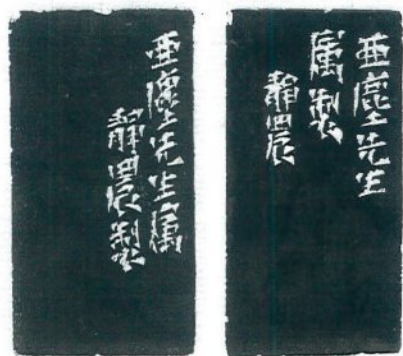 亜塵先生属
靜農製
亜塵先生
属製
靜農